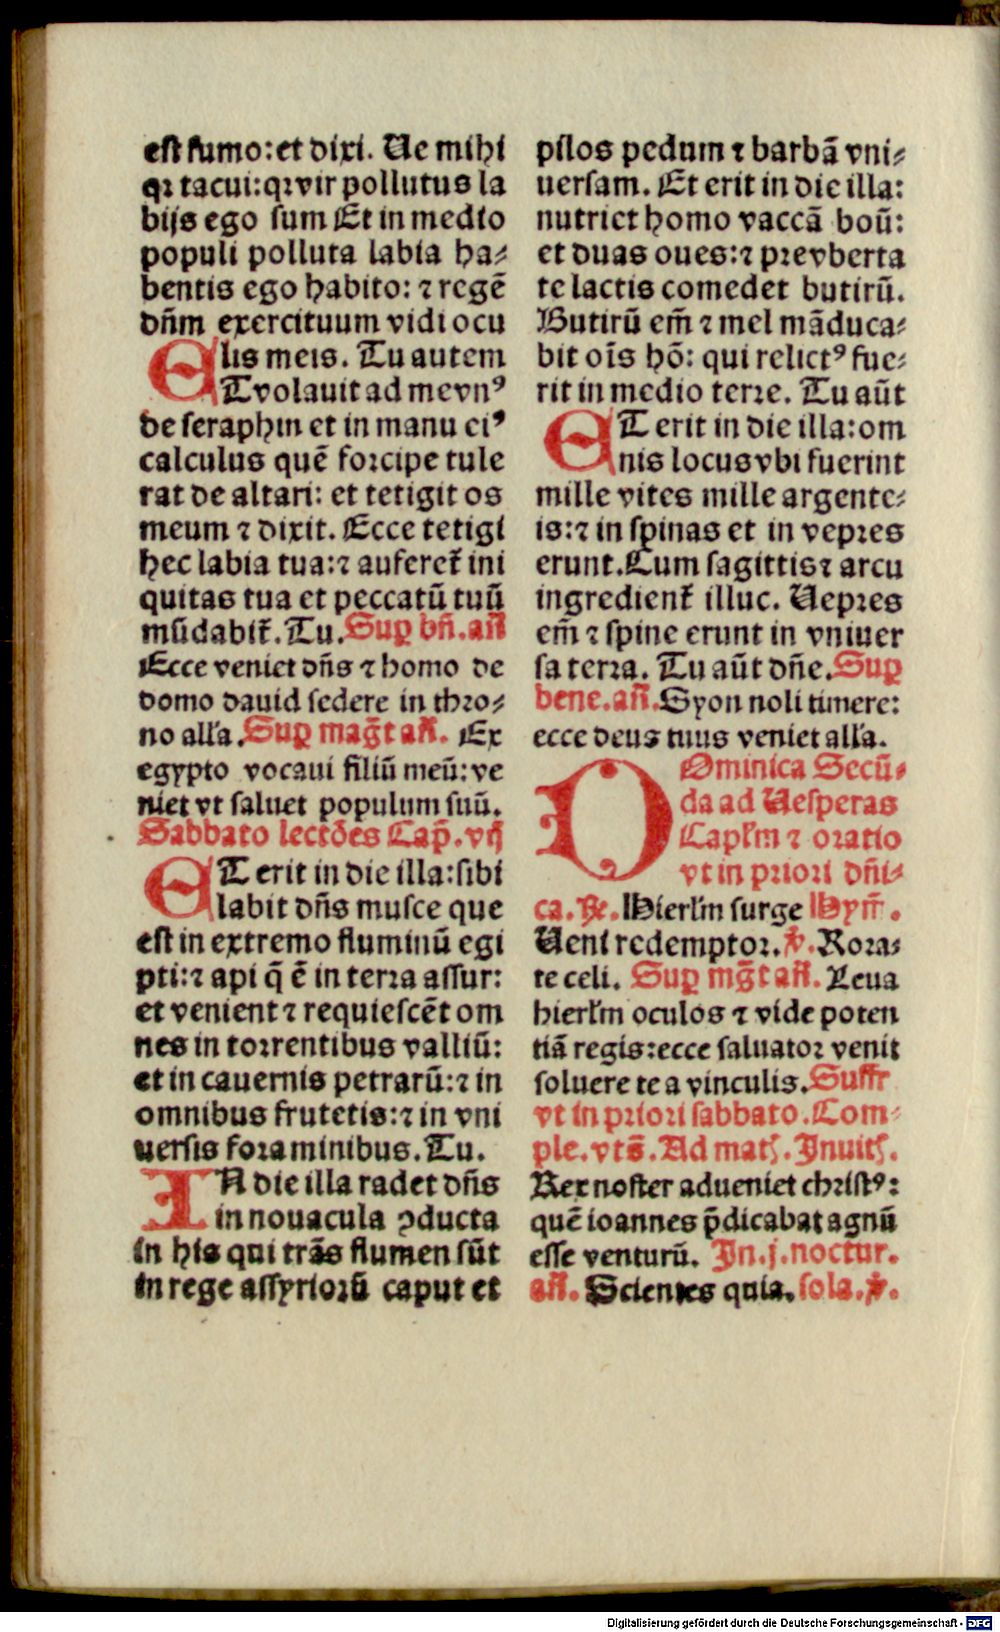 est fumo: et dixi. Ue mihi
qꝛ tacui: qꝛ vir pollutus la
bijs ego sum Et in medio
populi polluta labia ha⸗
bentis ego habito: ⁊ regē
dn̄m exercituum vidi ocu
lis meis. Tu autem
ET volauit ad me vnꝰ
de seraphin et in manu eiꝰ
calculus quē foꝛcipe tule
rat de altari: et tetigit os
meum ⁊ dixit. Ecce tetigi
hec labia tua: ⁊ auferet̄ ini
quitas tua et peccatū tuū
mūdabit̄. Tu. Suꝑ bn̄. an̄
Ecce veniet dn̄s ⁊ homo de
domo dauid sedere in thꝛo⸗
no all'a. Suꝑ maḡt an̄. Ex
egypto vocaui filiū meū: ve
niet vt saluet populum suū.
Sabbato lectōes Cap̄. vij
ET erit in die illa: sibi
labit dn̄s musce que
est in extremo fluminū egi
pti: ⁊ api q̄ ē in terra assur:
et venient ⁊ requiescēt om
nes in toꝛrentibus valliū:
et in cauernis petrarū: ⁊ in
omnibus frutetis: ⁊ in vni
uersis foꝛaminibus. Tu.
IN die illa radet dn̄s
in nouacula ꝯducta
in his qui trās flumen sūt
in rege assyrioꝛū caput et
pilos pedum ⁊ barbā vni⸗
uersam. Et erit in die illa:
nutriet homo vaccā boū:
et duas oues: ⁊ pꝛe vberta
te lactis comedet butirū.
Butirū em̄ ⁊ mel māduca⸗
bit oīs hō: qui relictꝰ fue⸗
rit in medio terꝛe. Tu aūt
ET erit in die illa: om
nis locus vbi fuerint
mille vites mille argente⸗
is: ⁊ in spinas et in vepꝛes
erunt. Cum sagittis ⁊ arcu
ingredient̄ illuc. Uepꝛes
em̄ ⁊ spine erunt in vniuer
sa terꝛa. Tu aūt dn̄e. Suꝑ
bene. an̄. Syon noli timere:
ecce deus tuus veniet all'a.
DOminica Secū⸗
da ad Uesperas
Capl'm ⁊ oꝛatio
vt in pꝛioꝛi dn̄i⸗
ca. ꝶ. Hierl'm surge Hym̄.
Ueni redemptoꝛ. ℣. Roꝛa⸗
te celi. Suꝑ mg̅t an̄. Leua
hierl'm oculos ⁊ vide poten
tiā regis: ecce saluatoꝛ venit
soluere te a vinculis. Suffr
vt in pꝛioꝛi sabbato. Com⸗
ple. vts̄. Ad mat̄. Inuit̄.
Rex noster adueniet christꝰ:
quē ioannes p̄dicabat agnū
esse venturū. In. j. noctur.
an̄. Scientes quia. sola. ℣.
Digitalisierung gefördert durch die Deutsche Forschungsgemeinschaft - DFG